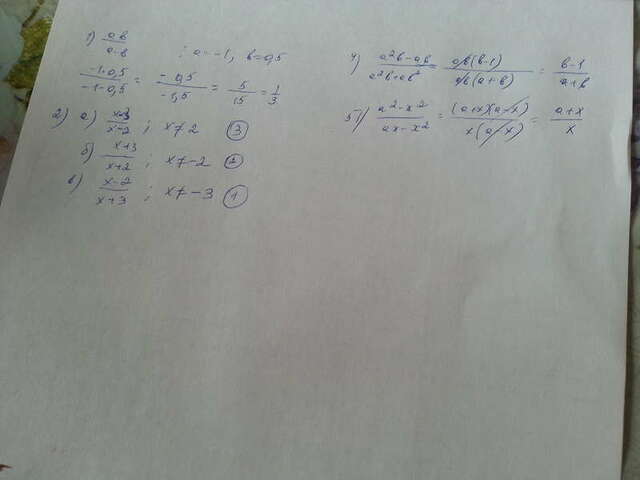 1) ab/a-b ; a=-1, b=0,5
-1·0,5/-1-0,5 = -0,5/-1,5 = 5/15 = 1/3
2) а) x+3/x-2 ; x≠2 ③
б) x+3/x+2 ; x≠-2 ②
в) x-2/x+3 ; x≠-3 ①
4) a²b-ab/a²b+ab² = ab(b-1)/ab(a+b) = b-1/a+b
5) a²-x²/ax-x² = (a+x)(a-x)/x(a-x) = a+x/x